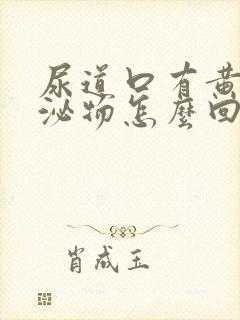 尿道口有黄
泌物怎麽回
肖成玉